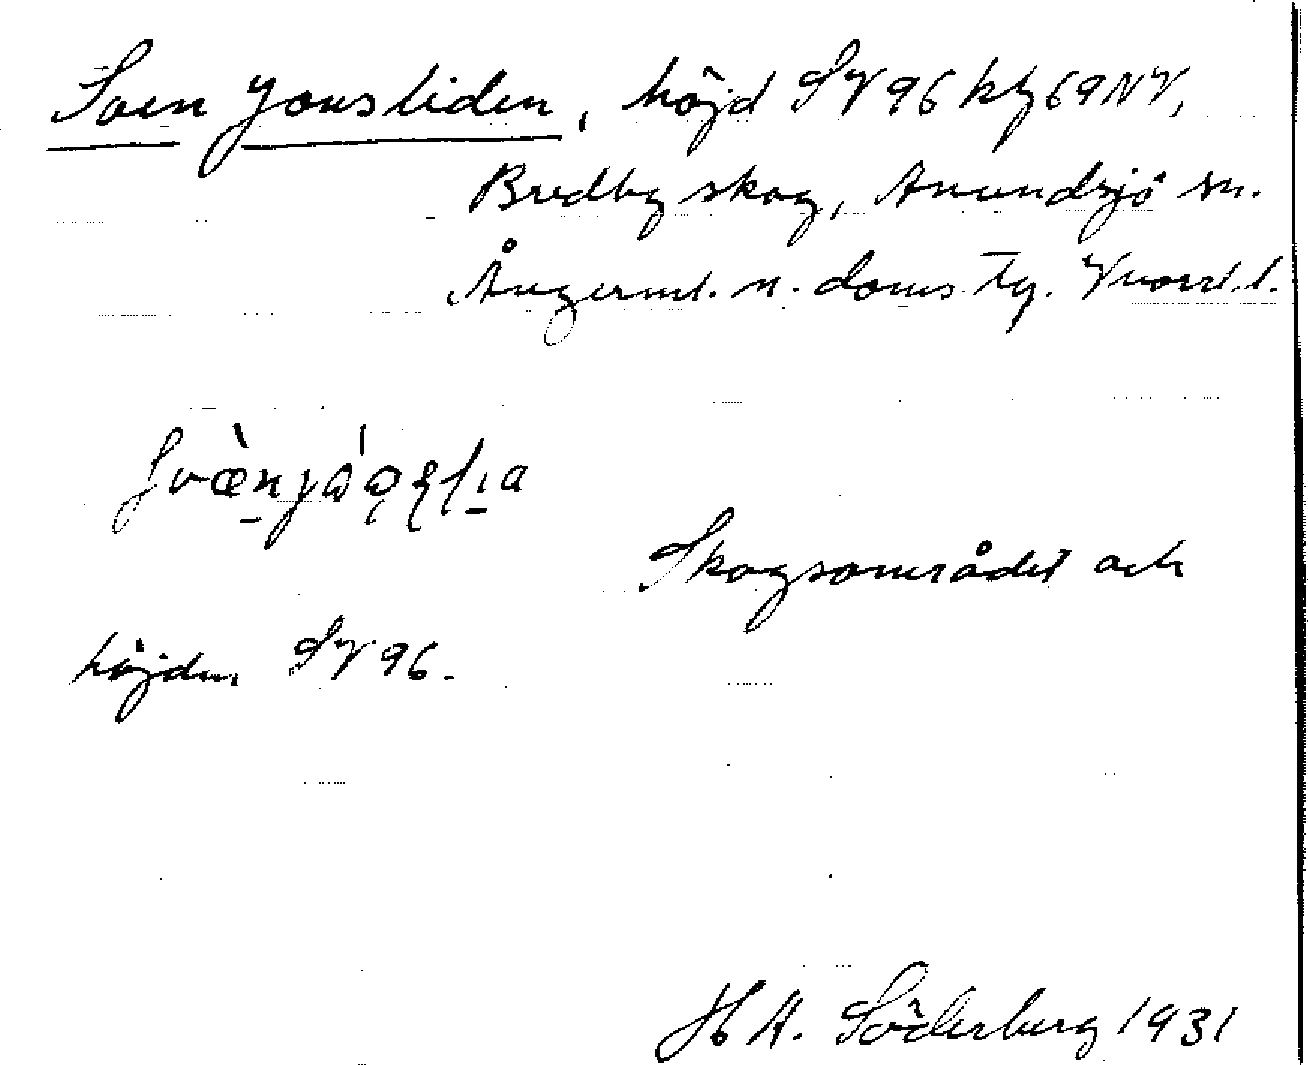 Sven Jonsliden, höjd SV 96 kbl 69 NV,
Bredby skog, Anundsjö sn.
Ångerml. n. doms tg. Vnorrl. l.
Skogsområdet och
höjden SV 96.
H A. Söderberg 1931